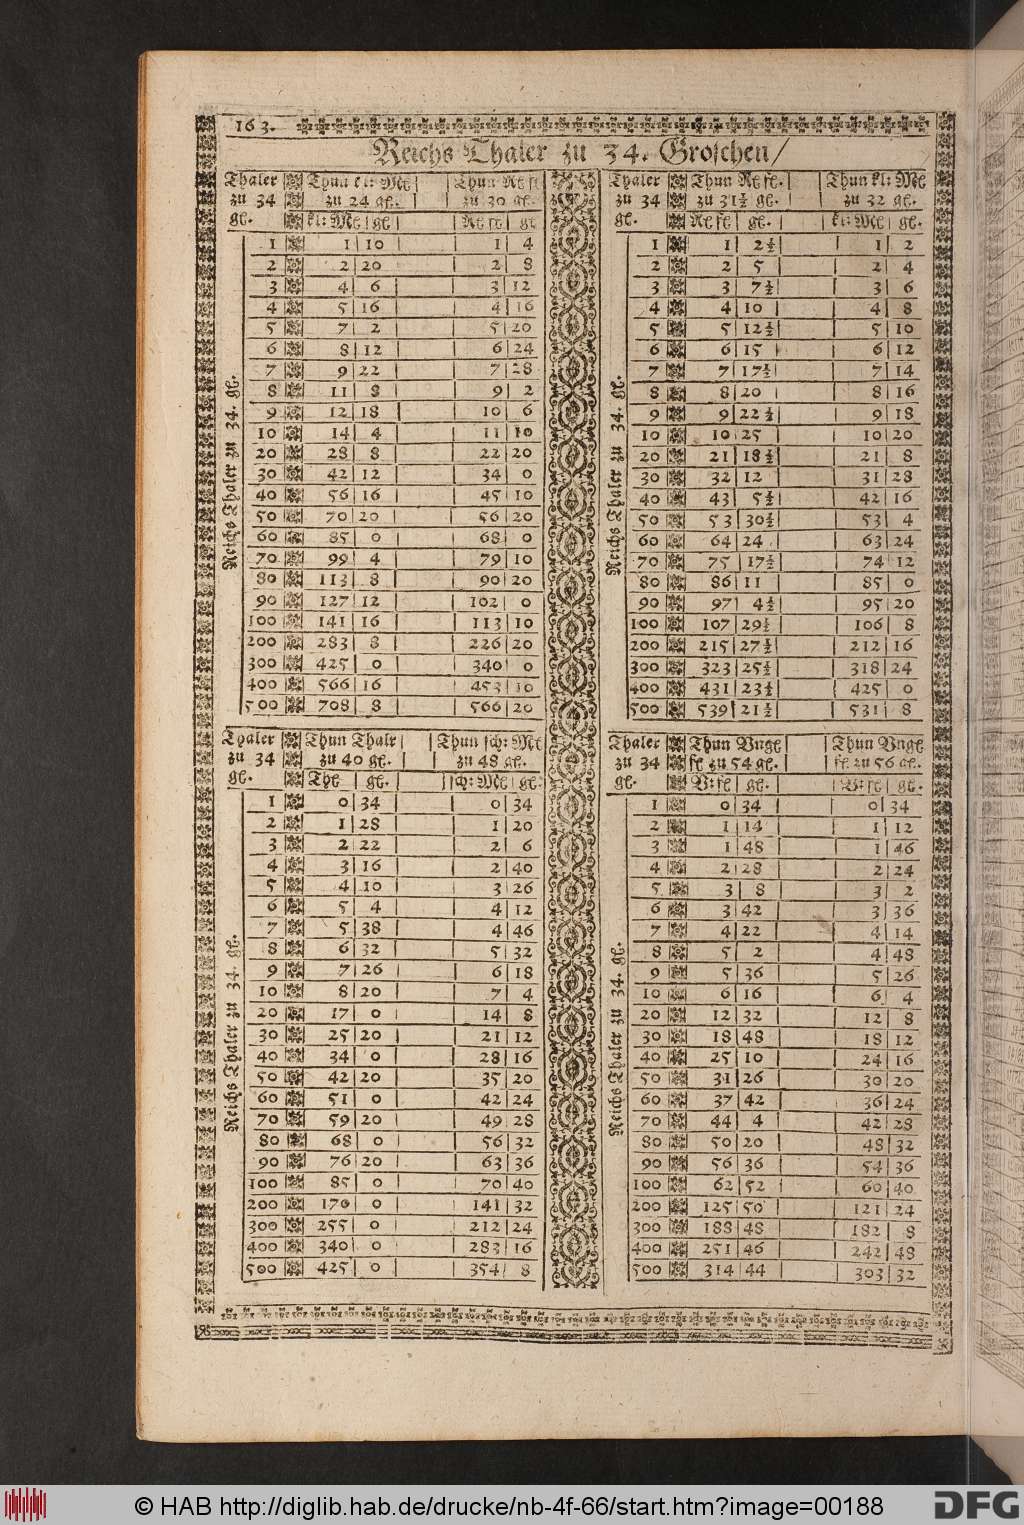 163.
Reichs Thaler zu 34. Groschen/
Thaler Thun kl: Mℓ Thun Rℓ fl
zu 34 zu 24 gl. zu 30 gl.
gl. kl: Mℓ gl Rℓ fl gl
1 1 10 1 4
2 2 20 2 8
3 4 6 3 12
4 5 16 4 16
5 7 2 5 20
6 8 12 6 24
7 9 22 7 28
8 11 8 9 2
9 12 18 10 6
10 14 4 11 10
20 28 8 22 20
30 42 12 34 0
40 56 16 45 10
50 70 20 56 20
60 85 0 68 0
70 99 4 79 10
80 113 8 90 20
90 127 12 102 0
100 141 16 113 10
200 283 8 226 20
300 425 0 340 0
400 566 16 453 10
500 708 8 566 20
Reichs Thaler zu 34. gl.
Thaler Thun Rℓ fl. Thun kl: Mℓ
zu 34 zu 31½ gl. zu 32 gl.
gl. Rℓ fl gl. kl: Mℓ gl.
1 1 2½ 1 2
2 2 5 2 4
3 3 7½ 3 6
4 4 10 4 8
5 5 12½ 5 10
6 6 15 6 12
7 7 17½ 7 14
8 8 20 8 16
9 9 22½ 9 18
10 10 25 10 20
20 21 18½ 21 8
30 32 12 31 28
40 43 5½ 42 16
50 53 30½ 53 4
60 64 24 63 24
70 75 17½ 74 12
80 86 11 85 0
90 97 4½ 95 20
100 107 29½ 106 8
200 215 27½ 212 16
300 323 25½ 318 24
400 431 23½ 425 0
500 539 21½ 531 8
Reichs Thaler zu 34. gl.
Thaler Thun Thalr Thun sch: Mℓ
zu 34 zu 40 gl. zu 48 gl.
gl. Thl gl. sch: Mℓ gl.
1 0 34 0 34
2 1 28 1 20
3 2 22 2 6
4 3 16 2 40
5 4 10 3 26
6 5 4 4 12
7 5 38 4 46
8 6 32 5 32
9 7 26 6 18
10 8 20 7 4
20 17 0 14 8
30 25 20 21 12
40 34 0 28 16
50 42 20 35 20
60 51 0 42 24
70 59 20 49 28
80 68 0 56 32
90 76 20 63 36
100 85 0 70 40
200 170 0 141 32
300 255 0 212 24
400 340 0 283 16
500 425 0 354 8
Reichs Thaler zu 34. gl.
Thaler Thun Vngl Thun Vngl
zu 34 fl zu 54 gl. fl zu 56 gl.
gl. V: fl gl. V: fl gl.
1 0 34 0 34
2 1 14 1 12
3 1 48 1 46
4 2 28 2 24
5 3 8 3 2
6 3 42 3 36
7 4 22 4 14
8 5 2 4 48
9 5 36 5 26
10 6 16 6 4
20 12 32 12 8
30 18 48 18 12
40 25 10 24 16
50 31 26 30 20
60 37 42 36 24
70 44 4 42 28
80 50 20 48 32
90 56 36 54 36
100 62 52 60 40
200 125 50 121 24
300 188 48 182 8
400 251 46 242 48
500 314 44 303 32
Reichs Thaler zu 34. gl.
© HAB http://diglib.hab.de/drucke/nb-4f-66/start.htm?image=00188
DFG